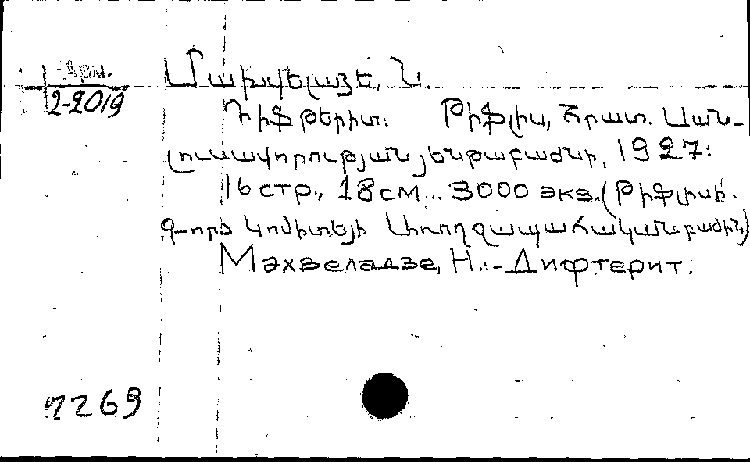 Արմ.
2-2019
Մախվելաձե, Ն.
Դիֆթերիտ: Թիֆլիս, Հրատ. Սան-
լուսավորության յենթաբաժնի, 1927:
16 стр., 18 см. 3000 экз. (Թիֆլիսի
գ-ործ կոմիտեյի Առողջապահական բաժին)
Махвеладзе, Н.:-Дифтерит.
7269